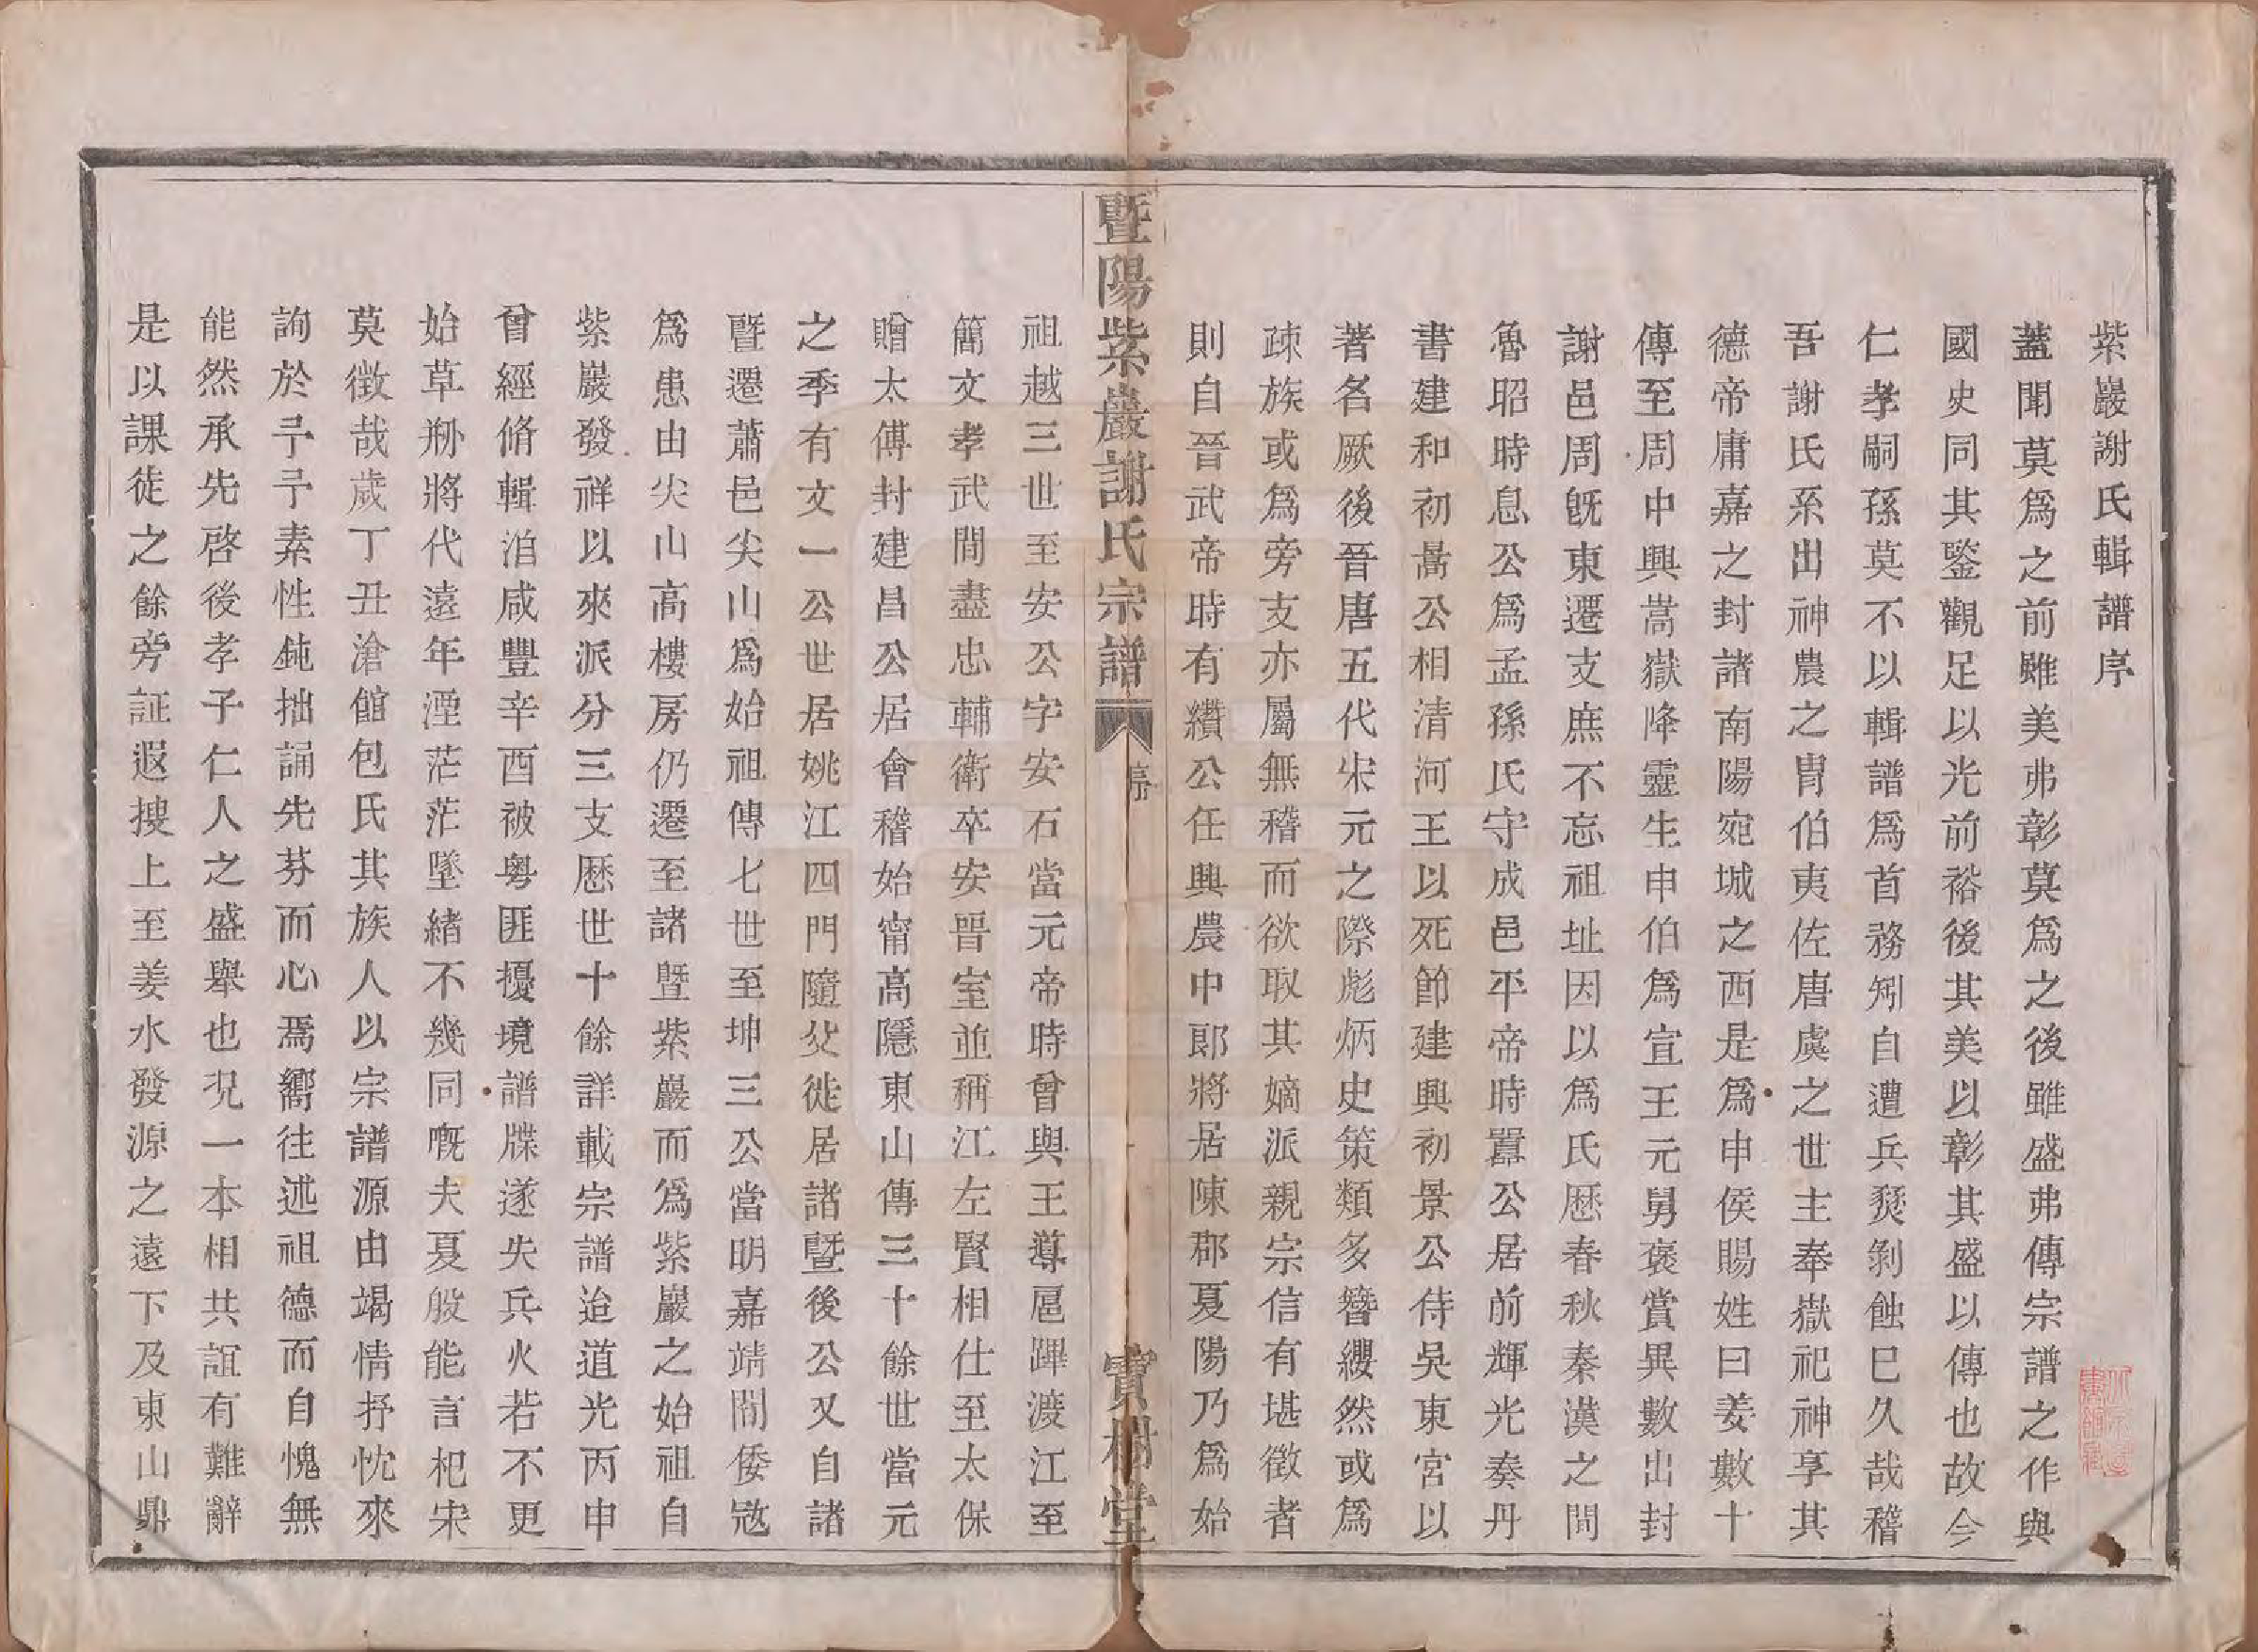 紫巖謝氏輯譜序
蓋聞莫爲之前雖美弗彰莫爲之後雖盛弗傳宗譜之作與
國史同其鑒觀足以光前裕後其美以彰其盛以傳也故今
仁孝嗣孫莫不以輯譜爲首務矧自遭兵燹剝蝕已久哉稽
吾謝氏系出神農之冑伯夷佐唐虞之世主奉嶽祀神享其
德帝庸嘉之封諸南陽宛城之西是爲申侯賜姓曰姜數十
傳至周中興嵩嶽降靈生申伯爲宣王元舅褒賞異數出封
謝邑周旣東遷支庶不忘祖址因以爲氏歷春秋秦漢之間
魯昭時息公爲孟孫氏守成邑平帝時囂公居前輝光奏丹
書建和初暠公相清河王以死節建興初景公侍吳東宮以
著名厥後晉唐五代宋元之際彪炳史策類多簪纓然或爲
疎族或爲旁支亦屬無稽而欲取其嫡派親宗信有堪徵者
則自晉武帝時有纘公任興農中郎將居陳郡夏陽乃爲始
暨陽紫巖謝氏宗譜
序
寶樹堂
祖越三世至安公字安石當元帝時曾與王導扈蹕渡江至
簡文孝武間盡忠輔衛卒安晉室並稱江左賢相仕至太保
贈太傅封建昌公居會稽始甯高隱東山傳三十餘世當元
之季有文一公世居姚江四門隨父徙居諸暨後公又自諸
暨遷蕭邑尖山爲始祖傳七世至坤三公當明嘉靖間倭寇
爲患由尖山高樓房仍遷至諸暨紫巖而爲紫巖之始祖自
紫巖發祥以來派分三支歷世十餘詳載宗譜迨道光丙申
曾經脩輯洎咸豐辛酉被粵匪擾境譜牒遂失兵火若不更
始草刱將代遠年湮茫茫墜緒不幾同嘅夫夏殷能言杞宋
莫徵哉歲丁丑滄館包氏其族人以宗譜源由竭情抒忱來
詢於予予素性鈍拙誦先芬而心焉嚮往述祖德而自愧無
能然承先啓後孝子仁人之盛舉也況一本相共誼有難辭
是以課徒之餘旁証遐搜上至姜水發源之遠下及東山鼎